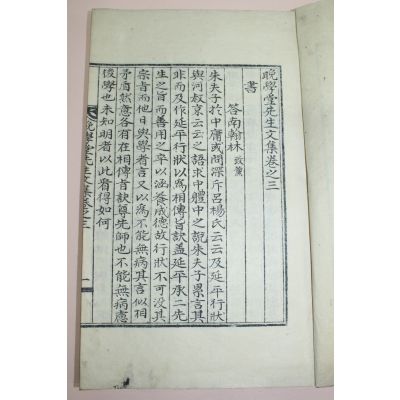 晩學堂先生文集卷之三
書
答南翰林 致薰
朱夫子於中庸或問深斥呂楊氏云云及延平行狀
與河叔京云云之語求中體中之說朱夫子累言其
非而及作延平行狀以爲相傳旨訣盖延平承二先
生之旨而善用之卒以涵養成德故行狀不可沒其
宗旨而他日與學者言又以爲不能無病其言似相
矛盾然意各有在相傳旨訣尊先師也不能無病憂
後學也未知明者以此看得如何
晩學堂先生文集卷之三
一